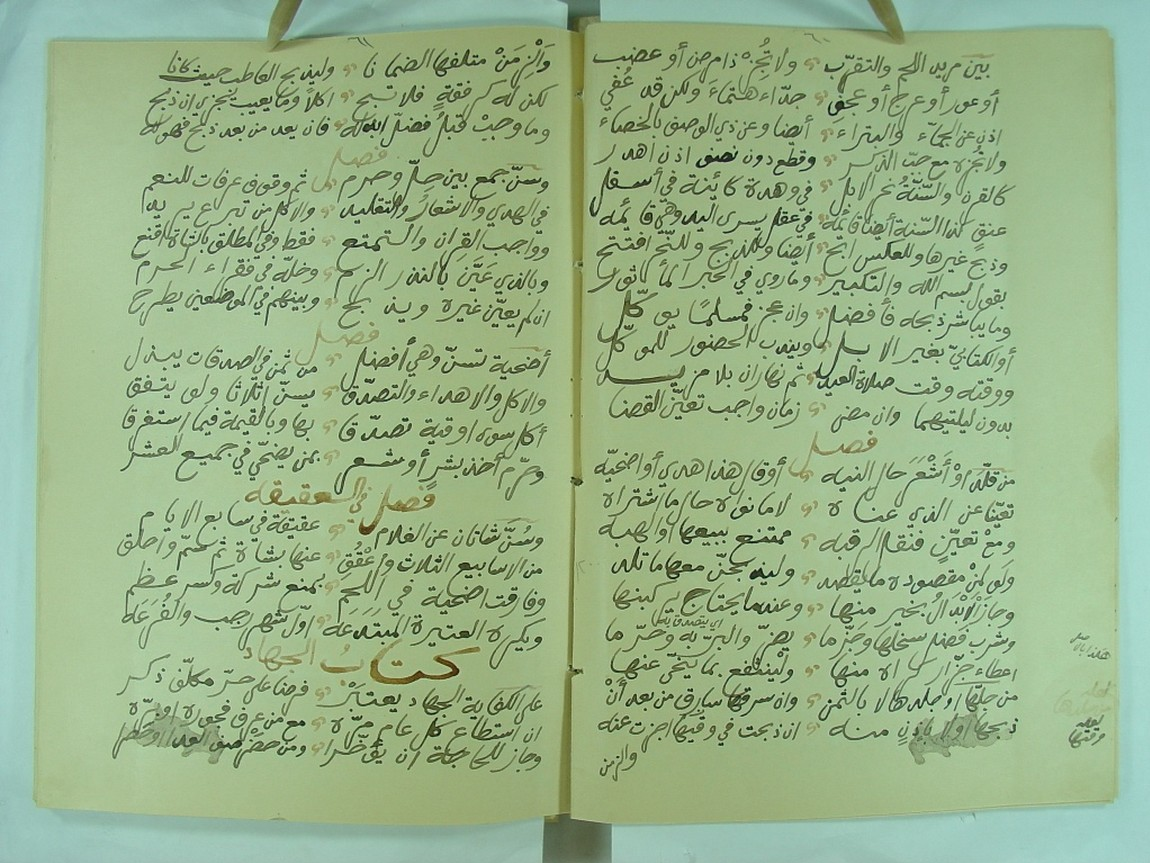 ٦٠
بين مريد اللحم والتقرب ولا تجزه ذا مرض أو عضب
أو عور أو عرج أو عجف جداء هتماء ولكن قد عفي
اذن عن الجماء والبتراء أيضا وعن ذي الوصف بالخصاء
ولا تجزه مع جب الذكر وقطع دون نصف اذن اهدر
كالقرن والسنة نحر الابل في وهدة كائنة في أسفل
عنق كذا السنة أيضا قائمة في عقل يسرى اليد وهي قائمه
وذبح غيرها وللعكس ابح أيضا وللذبح وللنحر افتتح
بقول بسم الله والتكبير وما روي في الخبر المأثور
وما يباشر ذبحه فأفضل وان عجز فمسلما يوكل
أو الكتابي بغير الابل ويندب الحضور للموكل
ووقته وقت صلاة العيد ثم نهاران بلا مزيد
بدون ليلتيهما وان مضى زمان واجب تعين القضا
فصل
من قلد أو أشعر حال النيه أو قال هذا هدي أو اضحيه
تعينا عن الذي عناه لا ما نواه حال ما اشتراه
ومع تعين فنقل الرقبه ممتنع ببيعها أو الهبه
ولو لمن مقصوده ما يقصد وليذبحن معها ما تلد
وجاز الابدال بخير منها وعندما يحتاج يركبنها
اي يتصدق به
وشرب فضل سخلها وجز ما يضر والبر به وحرما
اعطاء جزار كراه منها ولينتفع بما ينحي عنها
من جلها أو جلدها لا بالثمن وان سرقها سارق من بعد أن
ذبحها أولا باذن منه ان ذبحت في وقتها اجزت عنه
والزمن
لعله
وقتها
٦١
والزمن متلفها الضمانا وليذبح العاطب حيث كانا
لكن له كرفقة فلا تبح اكلا وما يعيب يجزي ان ذبح
وما وجب قبل ففضل ابدله فان يعد من بعد ذبح فهو له
فصل
وسن جمع بين حل وحرم ثم وقوف عرفات للنعم
في الهدي والاشعار والتقليد والاكل من تبرع يريد
وواجب القران والتمتع فقط وفي المطلق بالشاة اقنع
وبالذي عين بالنذر الزم وخله في فقراء الحرم
ان لم يعين غيره ويذبح وبينهم في الموضعين يطرح
فصل
أضحية تسن وهي أفضل من ثمن في الصدقات يبذل
والاكل والاهداء والتصدق يسن اثلاثا ولو يتفق
أكل سوى اوقية تصدقا بها وبالقيمة فيما استغرقا
وحرم أخذ بشر أو شعر بمن يضحي في جميع العشر
فصل في العقيقه
وسن شاتان عن الغلام عقيقة في سابع الايام
من الاسابيع الثلاث واعقق عنها بشاة ثم سم واحلق
وفارقت اضحية في اللحم بمنع شركة وكسر عظم
ويكره العتيرة المبتدعه اول شهر رجب والفرعه
كتاب الجهاد
على الكفاية الجهاد يعتبر فرضا على حر مكلف ذكر
ان استطاع كل عام مره مع من عرف فجوره أو بره
وجاز للحاجة ان يؤخرا ومن حضر صف العدا أو حصرا